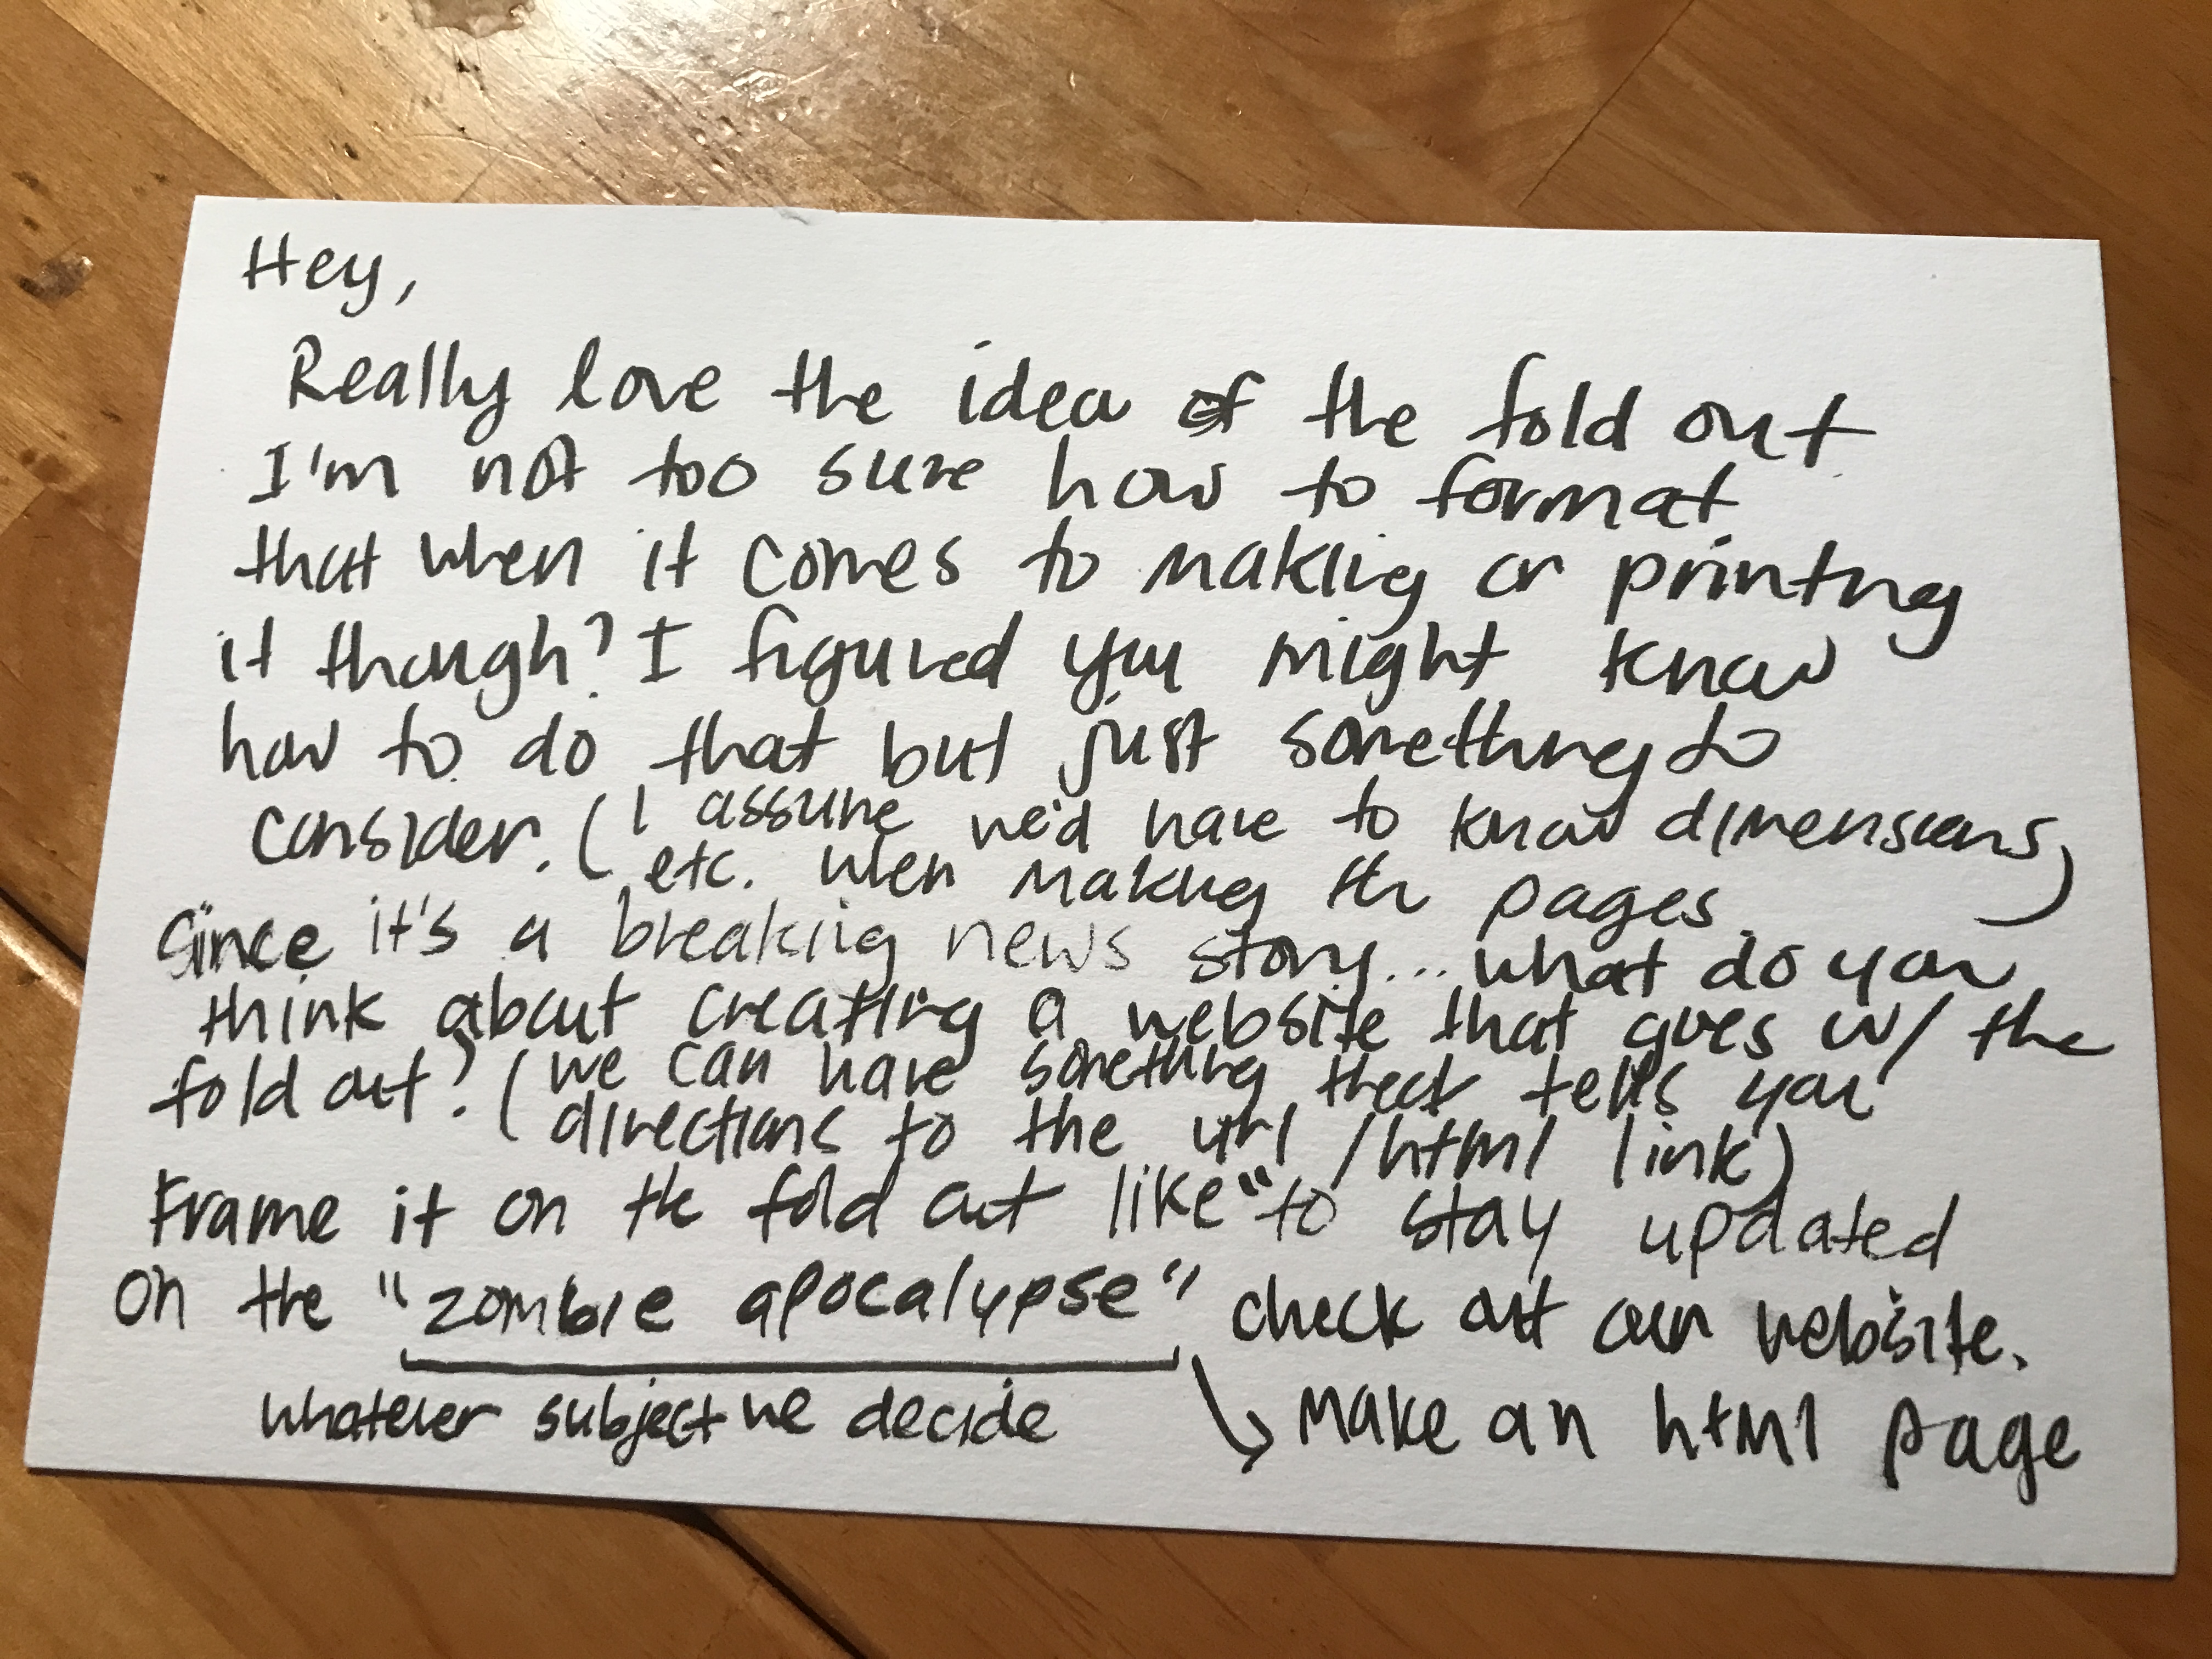 Hey,
Really love the idea of the fold out
I'm not too sure how to format
that when it comes to making or printing
it though? I figured you might know
how to do that but just something to
consider. (I assume we'd have to know dimensions
etc. when making the pages)
Since it's a breaking news story... what do you
think about creating a website that goes w/ the
fold out? (we can have something that tells you
directions to the url /html link)
Frame it on the fold out like "to stay updated
on the "zombie apocalypse" check out our website.
whatever subject we decide
↳ Make an html page